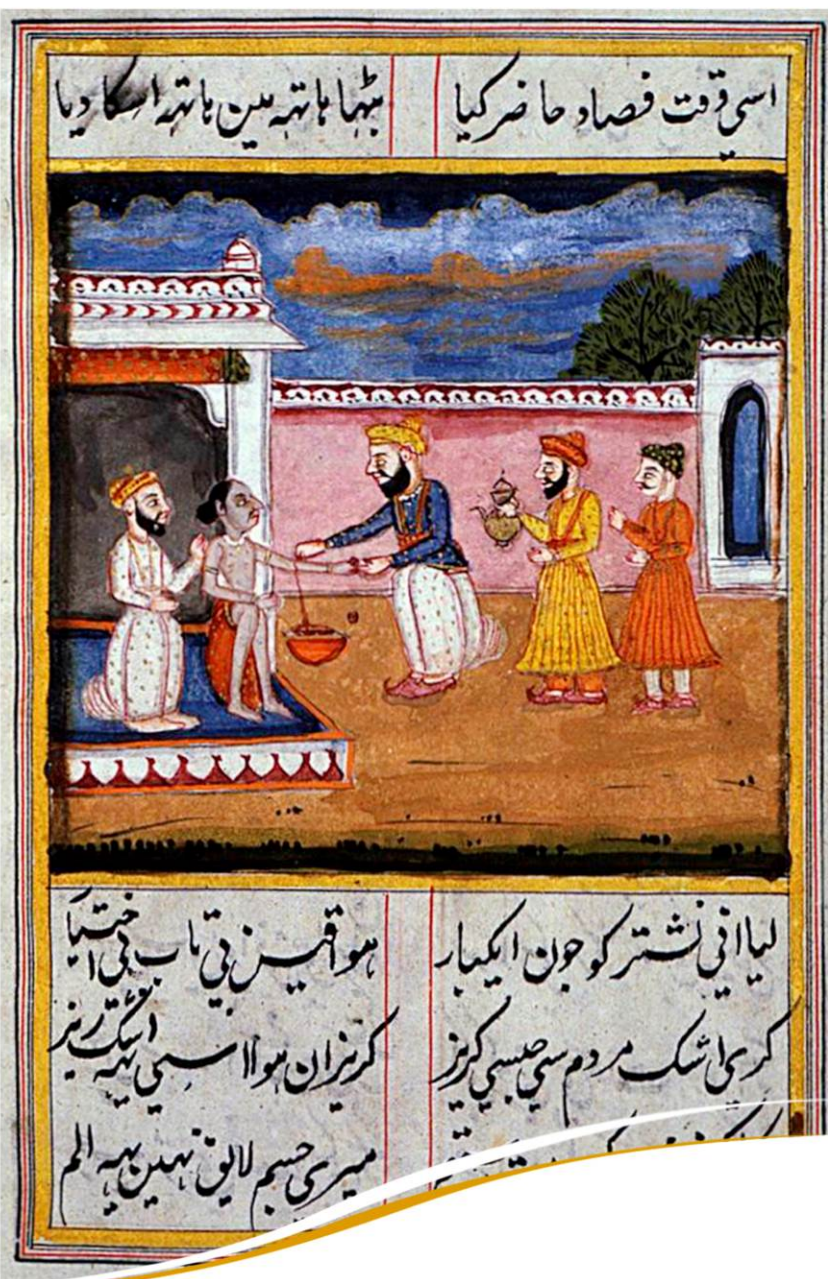 اسی وقت فصاد حاضر کیا بٹہا ہاتہہ مین ہاتہہ اسکا دیا
لیا نشتر کو جون ایکبار ہوا قیس بی تاب بی اختیا
کری اشک مردم سی جیسی کریز کریزان ہوا اسسی یہہ اشک ریز
میری جسم لایق نہین یہہ الم